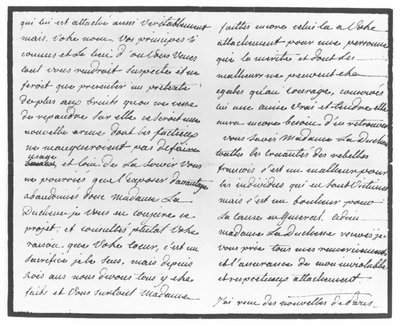 qui lui est attaché aussi véritablement
mais votre nom, vos principes si
connus et Le lieu d'où vous venez
tout vous rendroit suspecte et ne
feroit que presenter un prétexte
de plus aux bruits qu'on ne cesse
de repandre sur elle ce seroit une
nouvelle arme dont les factieux
ne manqueroient pas de faire
usage et loin de La servir vous
ne pourriez que l'exposer davantage
abandonnés donc madame La
Duchesse je vous en conjure ce
projet, et consultés plutot votre
raison que votre cœur, c'est un
sacrifice je le sens, mais depuis
trois ans nous devons tous y être
faits et vous surtout madame
faittes encore celui la a votre
attachement pour une personne
qui la merite et dont les
malheurs ne peuvent être
egalés qu'au courage, conservés
lui une amie vraie et tendre elle
aura encore besoin d'en retrouver
vous savés Madame La Duchesse
toutes les creautés des rebelles
francois c'est un malheur pour
les individus qui en sont victimes
mais c'est un bonheur pour
La Cause en General. adieu
madame La Duchesse recevés je
vous prie tous mes remerciements,
et l'assurance de mon inviolable
et respectueux attachement
J'ai reçu des nouvelles de Paris.